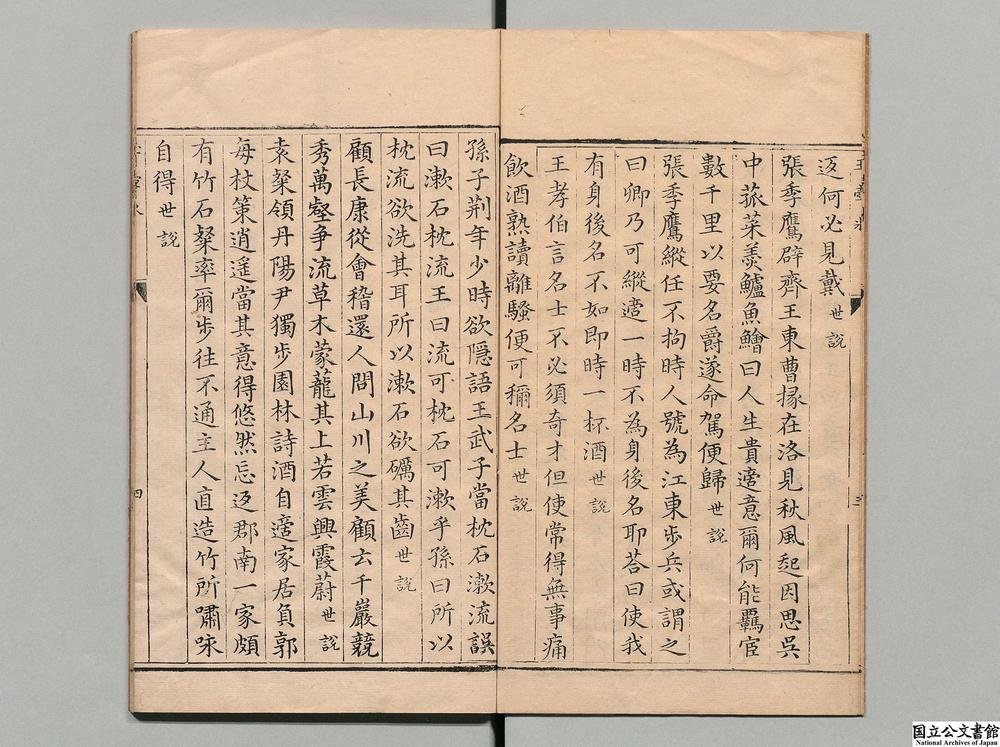 返何必見戴世說
張季鷹辟齊王東曹掾在洛見秋風起因思吳
中菰菜羮鱸魚鱠曰人生貴適意爾何能羈宦
數千里以要名爵遂命駕便歸世說
張季鷹縱任不拘時人號為江東步兵或謂之
曰卿乃可縱適一時不為身後名耶荅曰使我
有身後名不如即時一杯酒世說
王孝伯言名士不必須奇才但使常得無事痛
飲酒熟讀離騷便可稱名士世說
孫子荆年少時欲隱語王武子當枕石漱流誤
曰漱石枕流王曰流可枕石可漱乎孫曰所以
枕流欲洗其耳所以漱石欲礪其齒世說
顧長康從會稽還人問山川之美顧云千巖競
秀萬壑争流草木蒙蘢其上若雲興霞蔚世說
袁粲領丹陽尹獨步園林詩酒自適家居負郭
每杖策逍遥當其意得悠然忘返郡南一家頗
有竹石粲率爾步往不通主人直造竹所嘯咏
自得世說
四
国立公文書館
National Archives of Japan